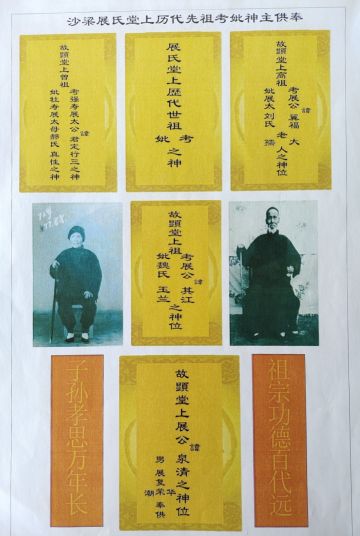 沙梁展氏堂上历代先祖考妣神主供奉
故顯堂上高祖
考展公諱冀福大
妣展太刘氏孺
老人之神位
展氏堂上歷代世祖
考妣之神
故顯堂上曾祖
考强寿展太公諱君定行三之神
妣壮寿展太母郝氏真性之神
故顯堂上祖
考展公諱其江
妣魏氏玉兰
之神位
祖宗功德百代远
故顯堂上展公諱泉清之神位
男展复荣华潮奉供
子孙孝思万年长